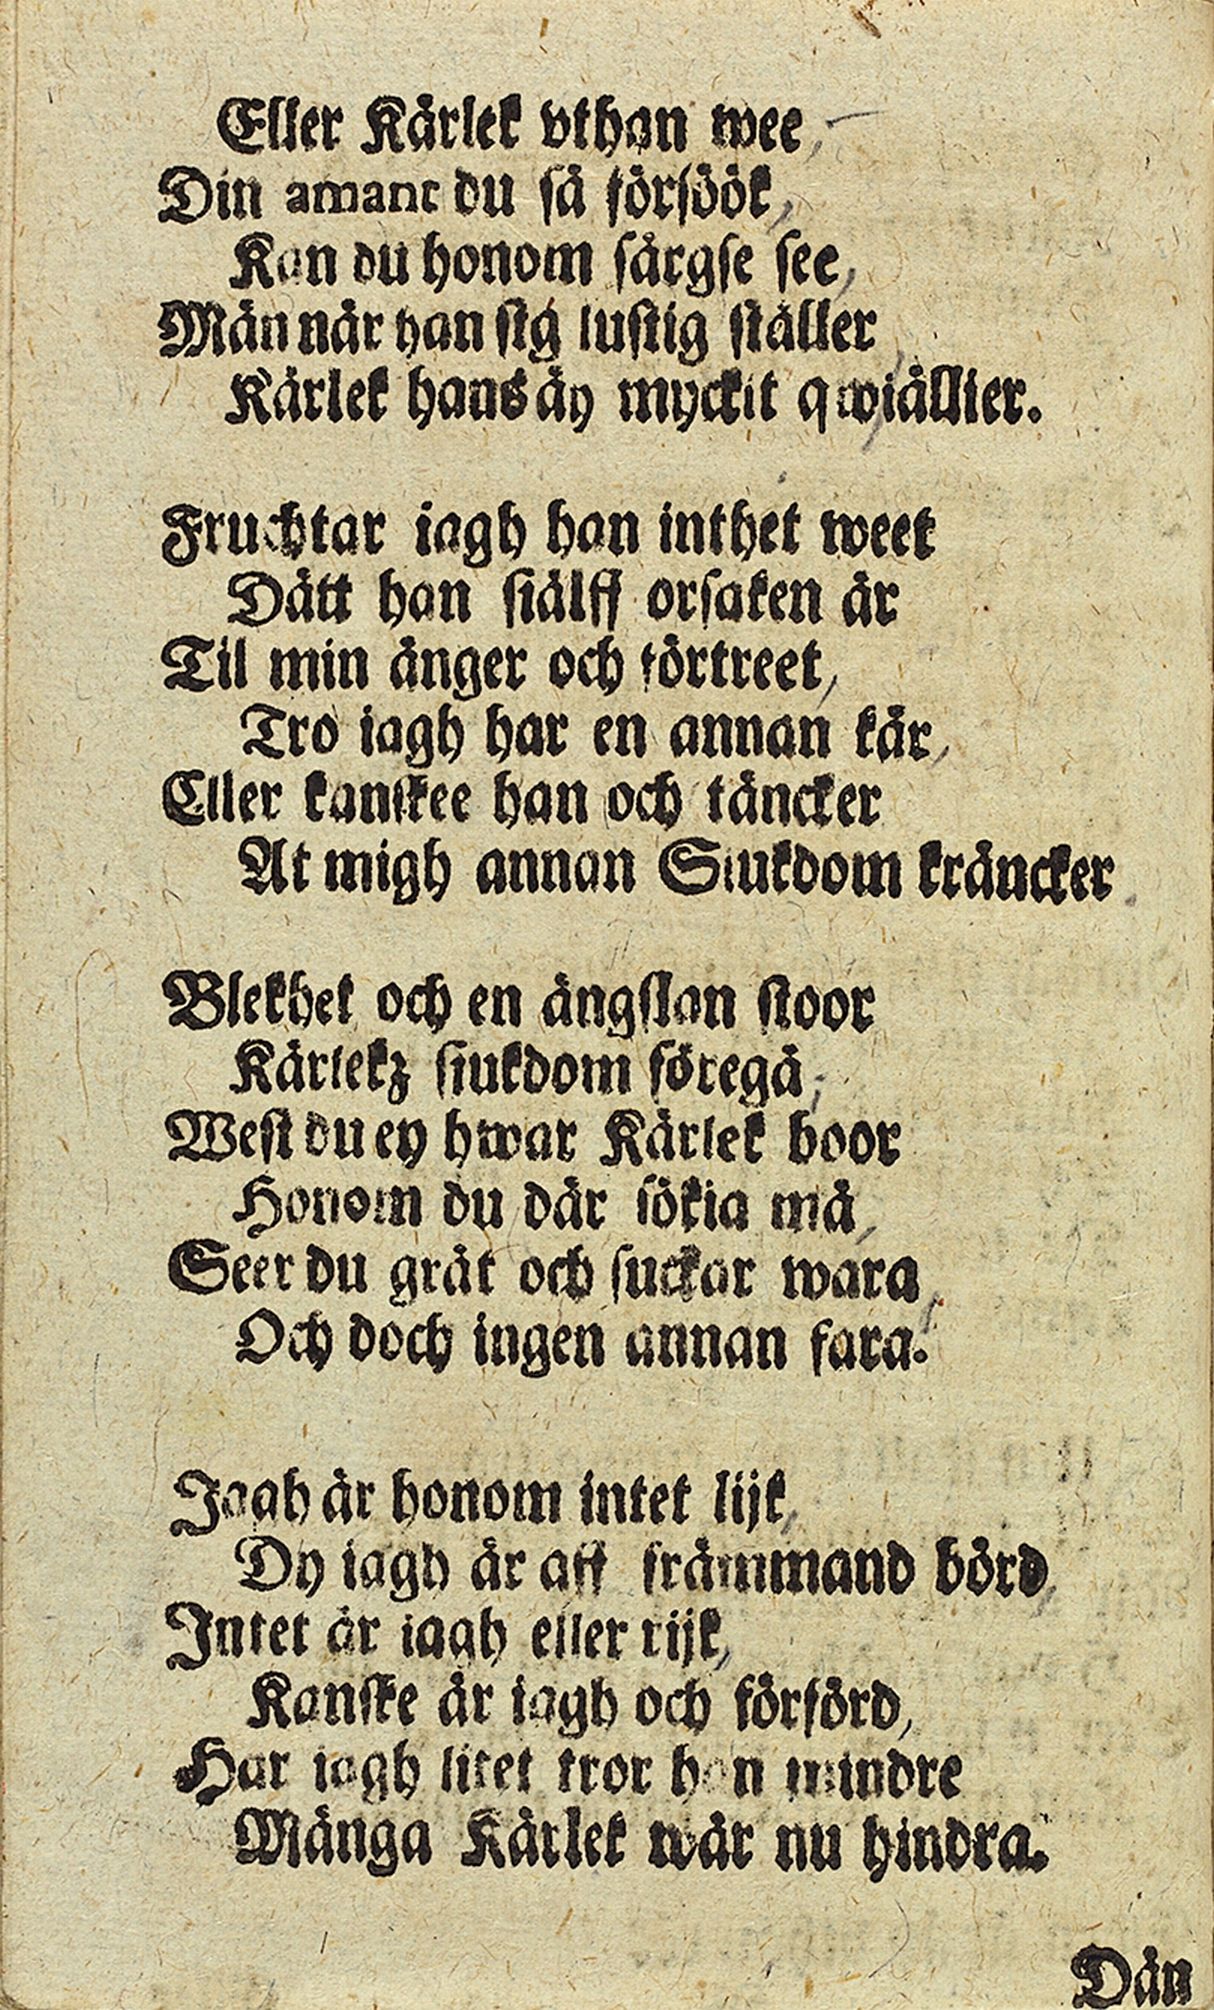 Eller Kärlek vthan wee,
Din amant du så försöök,
Kan du honom särgse see,
Män när han sig lustig ställer
Kärlek hans äy myckit qwiällier.
Fruchtar iagh han inthet weet
Dätt han siälff orsaken är
Til min ånger och förtreet,
Tro iagh har en annan kär,
Eller kanskee han och täncker
At migh annan Siukdom kräncker
Blekhet och en ängslan stoor
Kärlekz siukdom föregå,
West du ey hwar Kärlek boor
Honom du där sökia må,
Seer du gråt och suckar wara,
Och doch ingen annan fara.
Jagh är honom intet lijk,
Dy iagh är aff främmand börd,
Intet är iagh eller rijk,
Kanske är iagh och förförd,
Har iagh litet tror han mindre
Många Kärlek wår nu hindra.
Dän